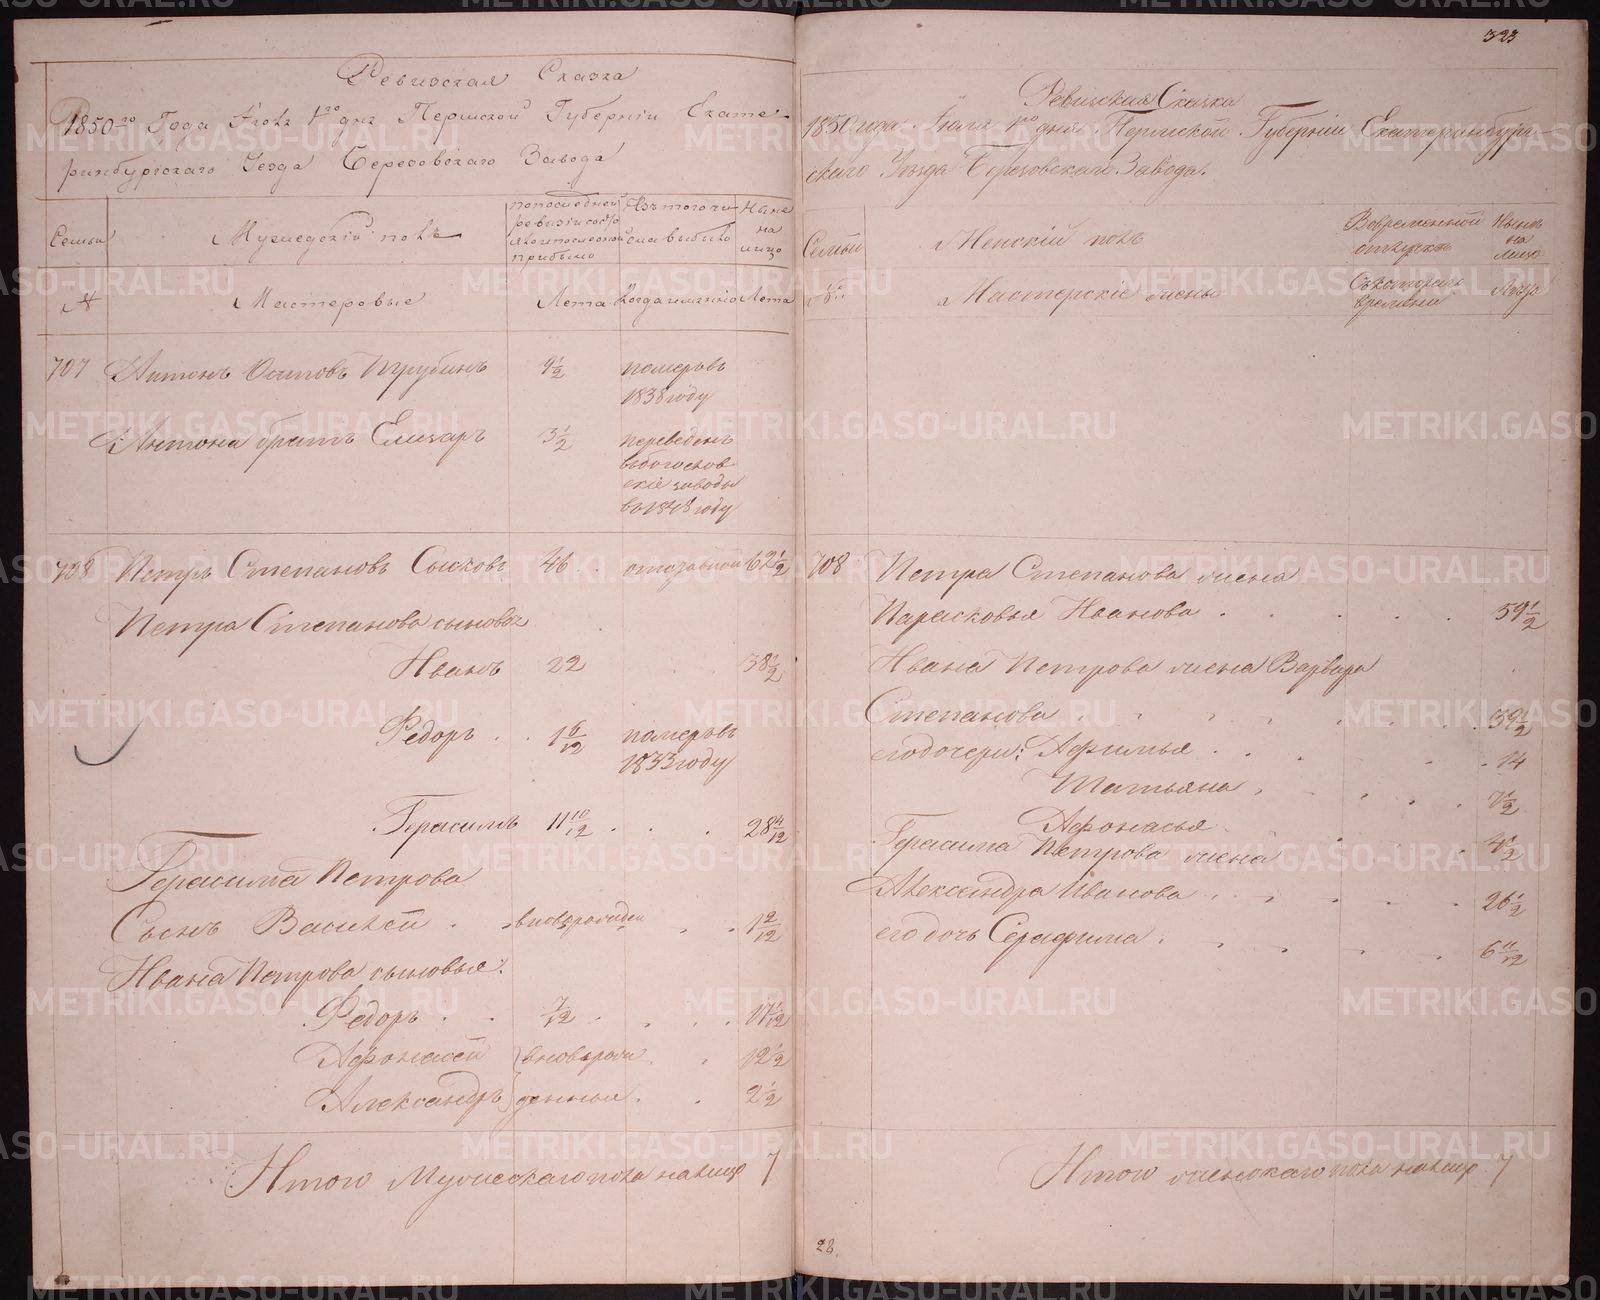 Ревизская Сказка
1850го Года Іюля 1го дня Пермской Губерніи Екате-
ринбургскаго Уезда Березовскаго Завода
Семьи
Мужескій полъ
по последней ревизіи состояло и после оной прибыло
Изъ того числа выбыло
Ныне на лицо
№
Мастеровые
Лета
Когда именно
Лета
707 Антонъ Осиповъ Трубинъ 9 1/2 померъ въ
1838 году
Антона братъ Елизаръ 3 1/2 переведенъ
въ богослов
скіе заводы
въ 1848 году
708 Петръ Степановъ Сысковъ 46 62 1/2
Петра Степанова сыновья
Иванъ 22 38 1/2
Федоръ 1 6/12 померъ въ
1833 году
Герасимъ 11 10/12 28 4/12
Герасима Петрова
Сынъ Василей вновьрожден 1 2/12
Ивана Петрова сыновья:
Федоръ 7/12 17 1/12
Афонасей вновьрож 12 1/2
Александръ денные 2 1/2
Итого Мужескаго пола налицо 7
323
Ревизская Сказка
1850 года Іюля 1го дня Пермской Губерніи Екатеринбург-
скаго Уезда Березовскаго Завода.
Семьи
Женскій полъ
Вовременной отлучкѣ
Нынѣ на лицо
№
Мастерскіе жены
Съ котораго времени
Лѣта
708 Петра Степанова жена
Парасковья Иванова 59 1/2
Ивана Петрова жена Варвара
Степанова 39 1/2
его дочери: Афимья 14
Татьяна 7 1/2
Афонасья 4 1/2
Герасима Петрова жена
Александра Иванова 26 1/2
его дочь Серафима 6 11/12
Итого женскаго пола налицо 7
28.
METRIKI.GASO-URAL.RU